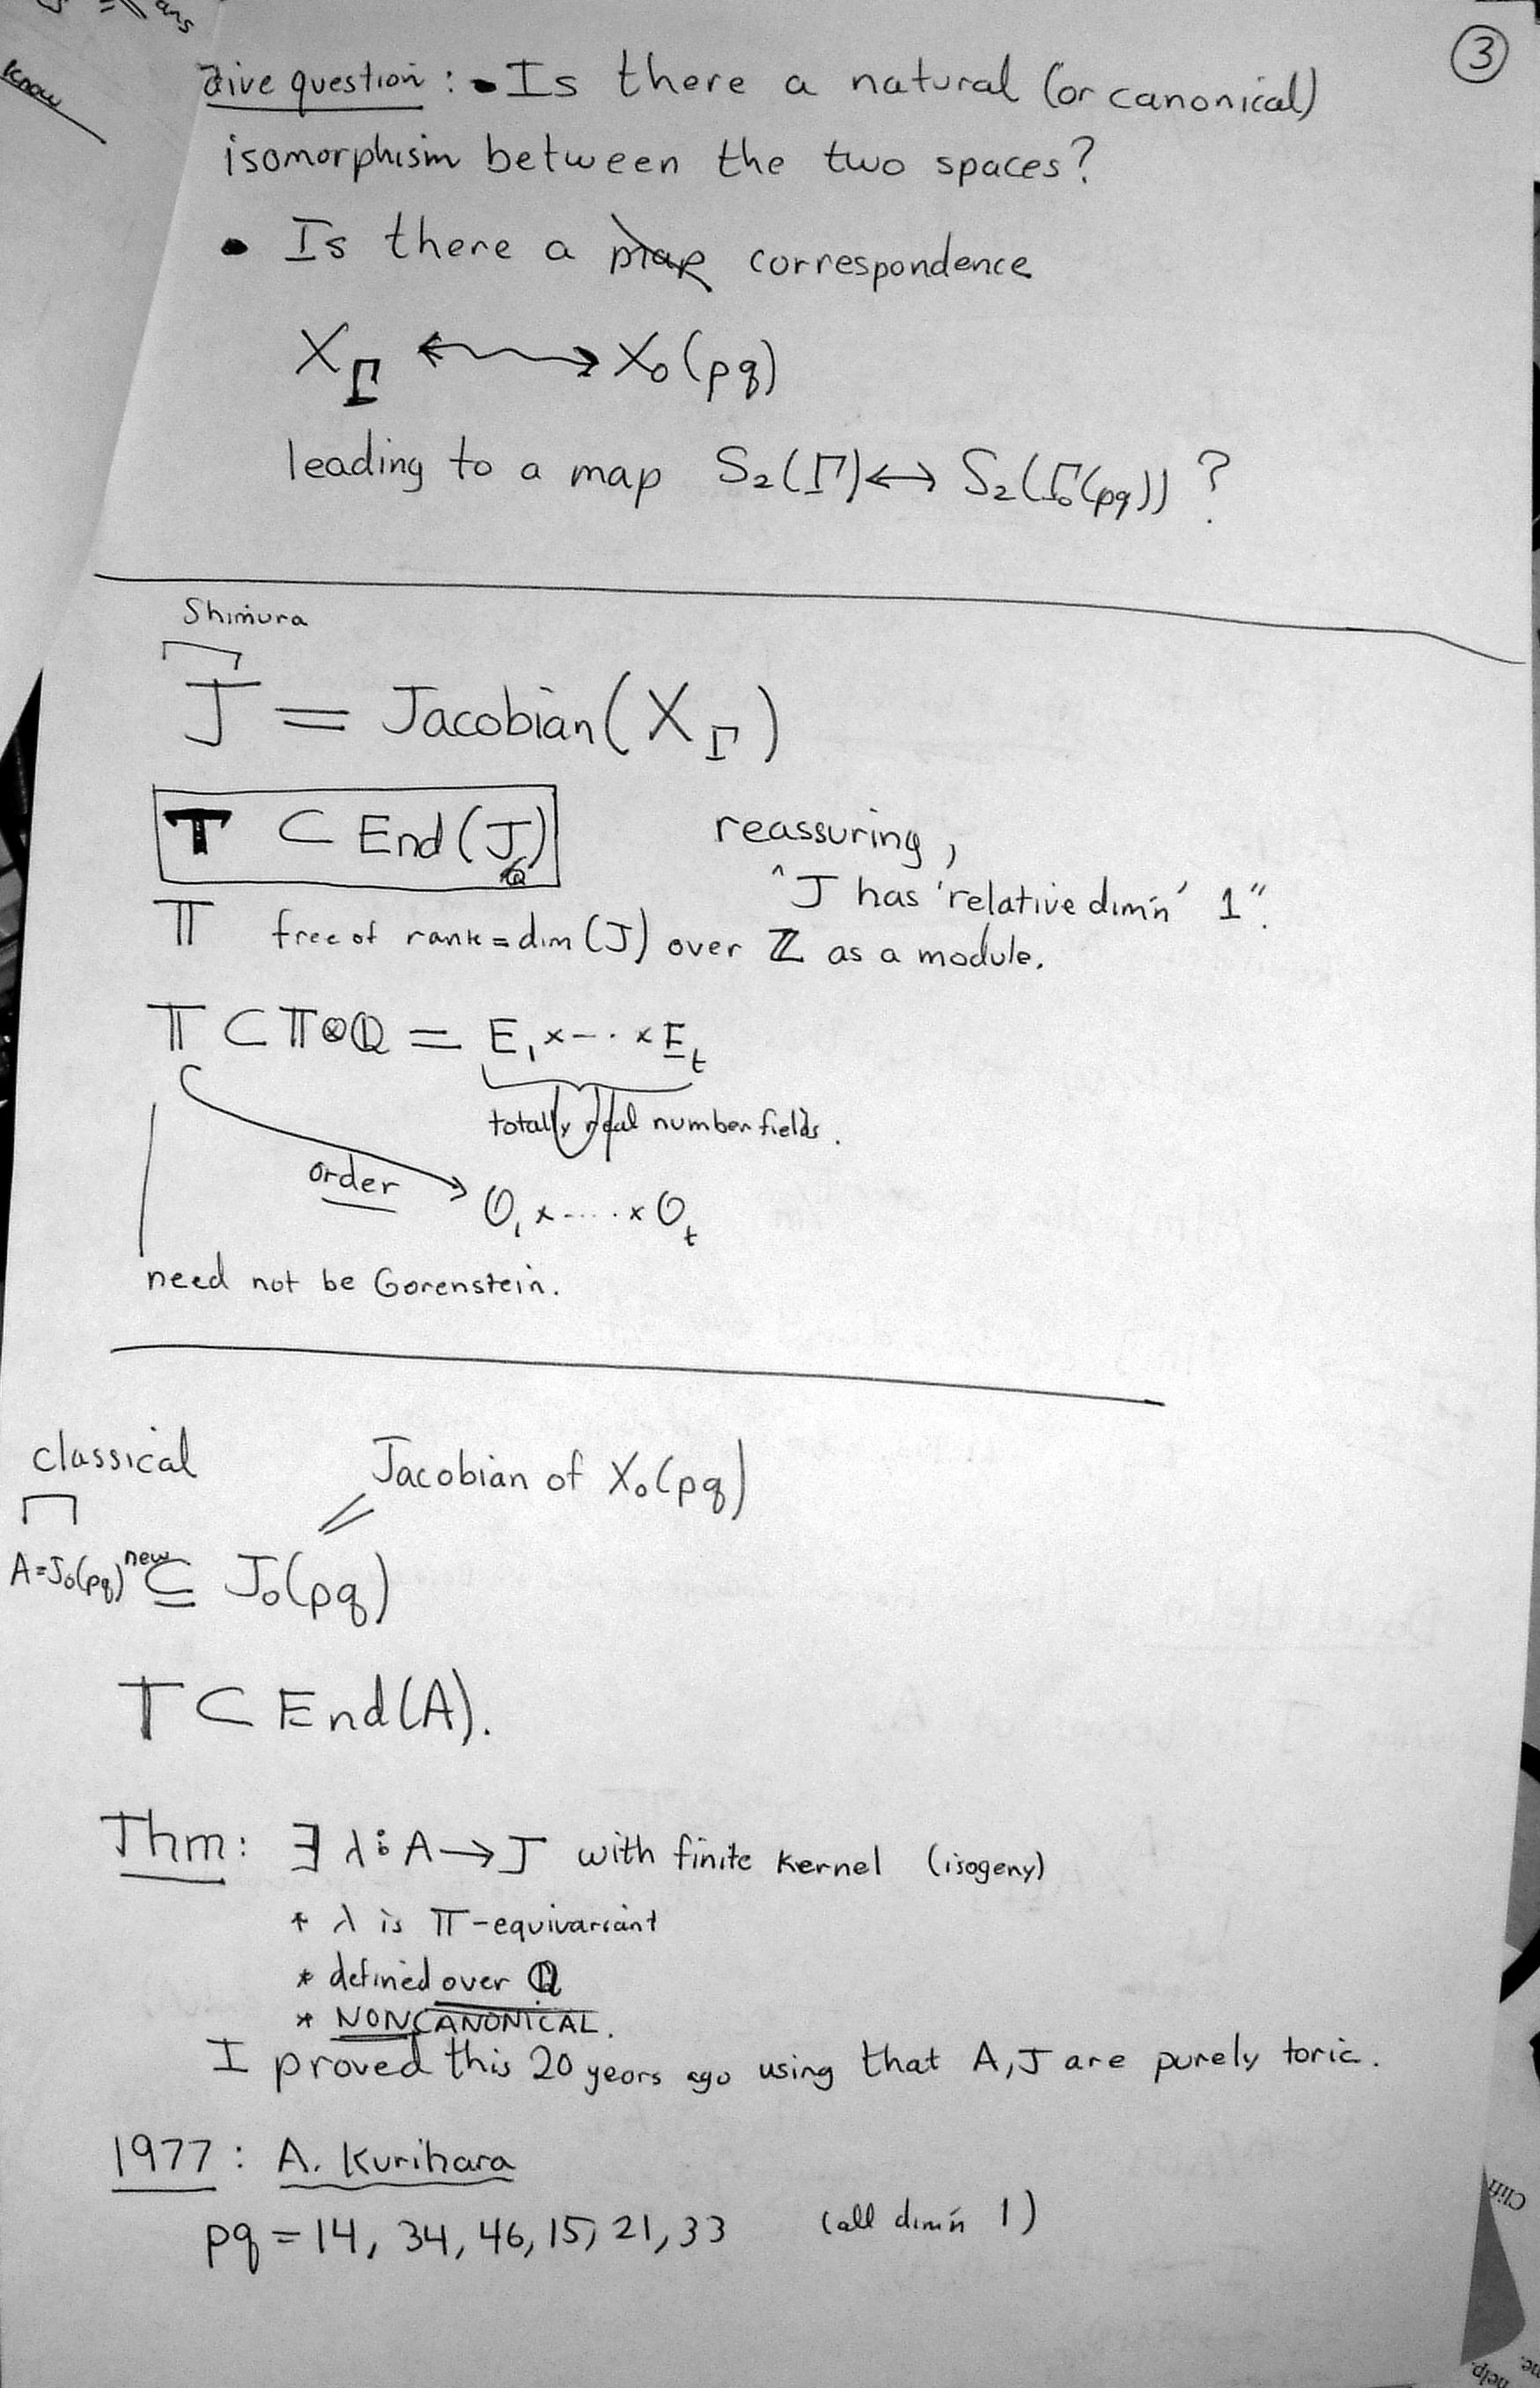 ③
aive question : • Is there a natural (or canonical)
isomorphism between the two spaces?
• Is there a map correspondence
X_Γ ↔ X₀(pq)
leading to a map S₂(Γ) ↔ S₂(Γ₀(pq)) ?
Shimura
J = Jacobian(X_Γ)
𝕋 ⊂ End(J_ℚ)
reassuring,
"J has 'relative dim'n' 1".
𝕋 free of rank = dim(J) over ℤ as a module.
𝕋 ⊂ 𝕋⊗ℚ = E₁ × -·· × E_t
totally real number fields.
order
O₁ × ···· × O_t
need not be Gorenstein.
classical
Jacobian of X₀(pq)
A=J₀(pq)^new ⊆ J₀(pq)
T ⊂ End(A).
Thm: ∃ λ: A → J with finite kernel (isogeny)
* λ is 𝕋-equivariant
* defined over ℚ
* NONCANONICAL.
I proved this 20 years ago using that A, J are purely toric.
1977 : A. Kurihara
pq = 14, 34, 46, 15, 21, 33 (all dim'n 1)
know
ans
Cliff
help.